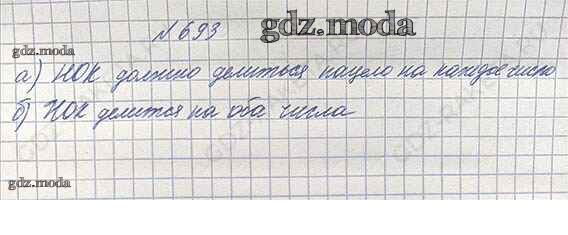 № 693
gdz.moda
gdz.moda
а) НОК должно делиться нацело на каждое число
б) НОК делится на оба числа
gdz.moda